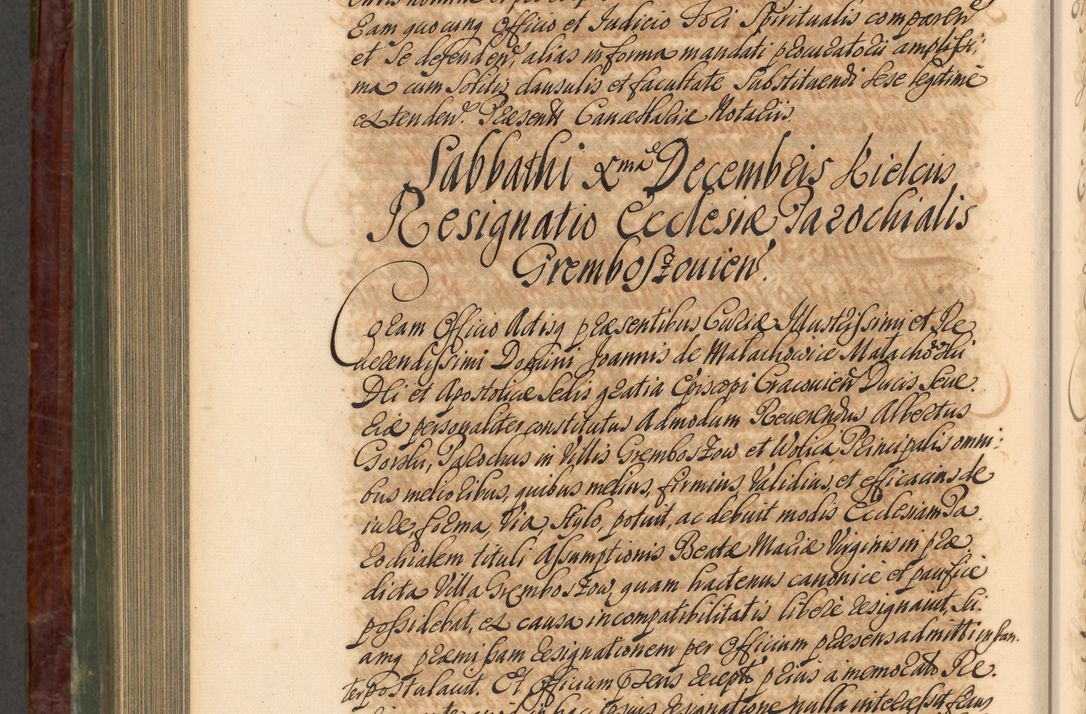 Eam quocunq Officio et Iudicio Foci Spiritualis comparen
et se defenden, alias in forma mandati procuratorii amplissi,
ma cum solitis clausulis et facultate substituendi sese legitime
extenden. Præsent Cancellariæ Notariis.
Sabbathi Xma Decembris Kielciis
Resignatio Ecclesiæ Parochialis
Gremboszovien.
Coram Officio Actisq præsentibus Curiæ Illustrissimi et Re
verendissimi Domini Joannis de Małachowice Małachowski
Dei et Apostolicæ Sedis gratia Episcopi Cracovien Ducis Seve
riæ personaliter constitutus Admodum Reverendus Albertus
Gorski, Parochus in Villis Gremboszow et Wolica Principalis omni:
bus melioribus, quibus melius, firmius, validius, et efficacius de
iure, forma, via, stylo, potuit, ac debuit modis Ecclesiam Pa
rochialem tituli Assumptionis Beatæ Mariæ Virginis in præ
dicta Villa Gremboszow, quam hactenus canonicè et pacificè
possidebat, ex causa incompatibilitatis liberè resignavit, Su
amq præmissam resignationem per Officium præsens admitti instan.
ter postulavit. Et Officium præsens recepto prius à memorato Re